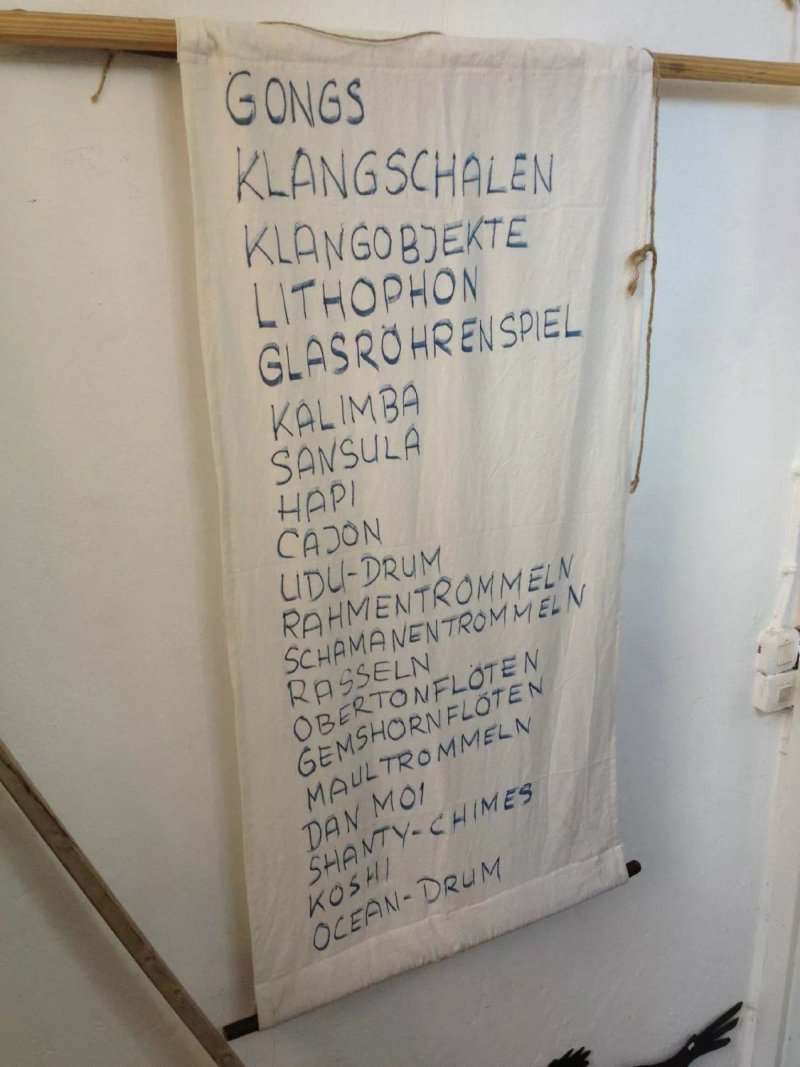 GONGS
KLANGSCHALEN
KLANGOBJEKTE
LITHOPHON
GLASRÖHRENSPIEL
KALIMBA
SANSULA
HAPI
CAJON
UDU-DRUM
RAHMENTROMMELN
SCHAMANENTROMMELN
RASSELN
OBERTONFLÖTEN
GEMSHORNFLÖTEN
MAULTROMMELN
DAN MOI
SHANTY-CHIMES
KOSHI
OCEAN-DRUM